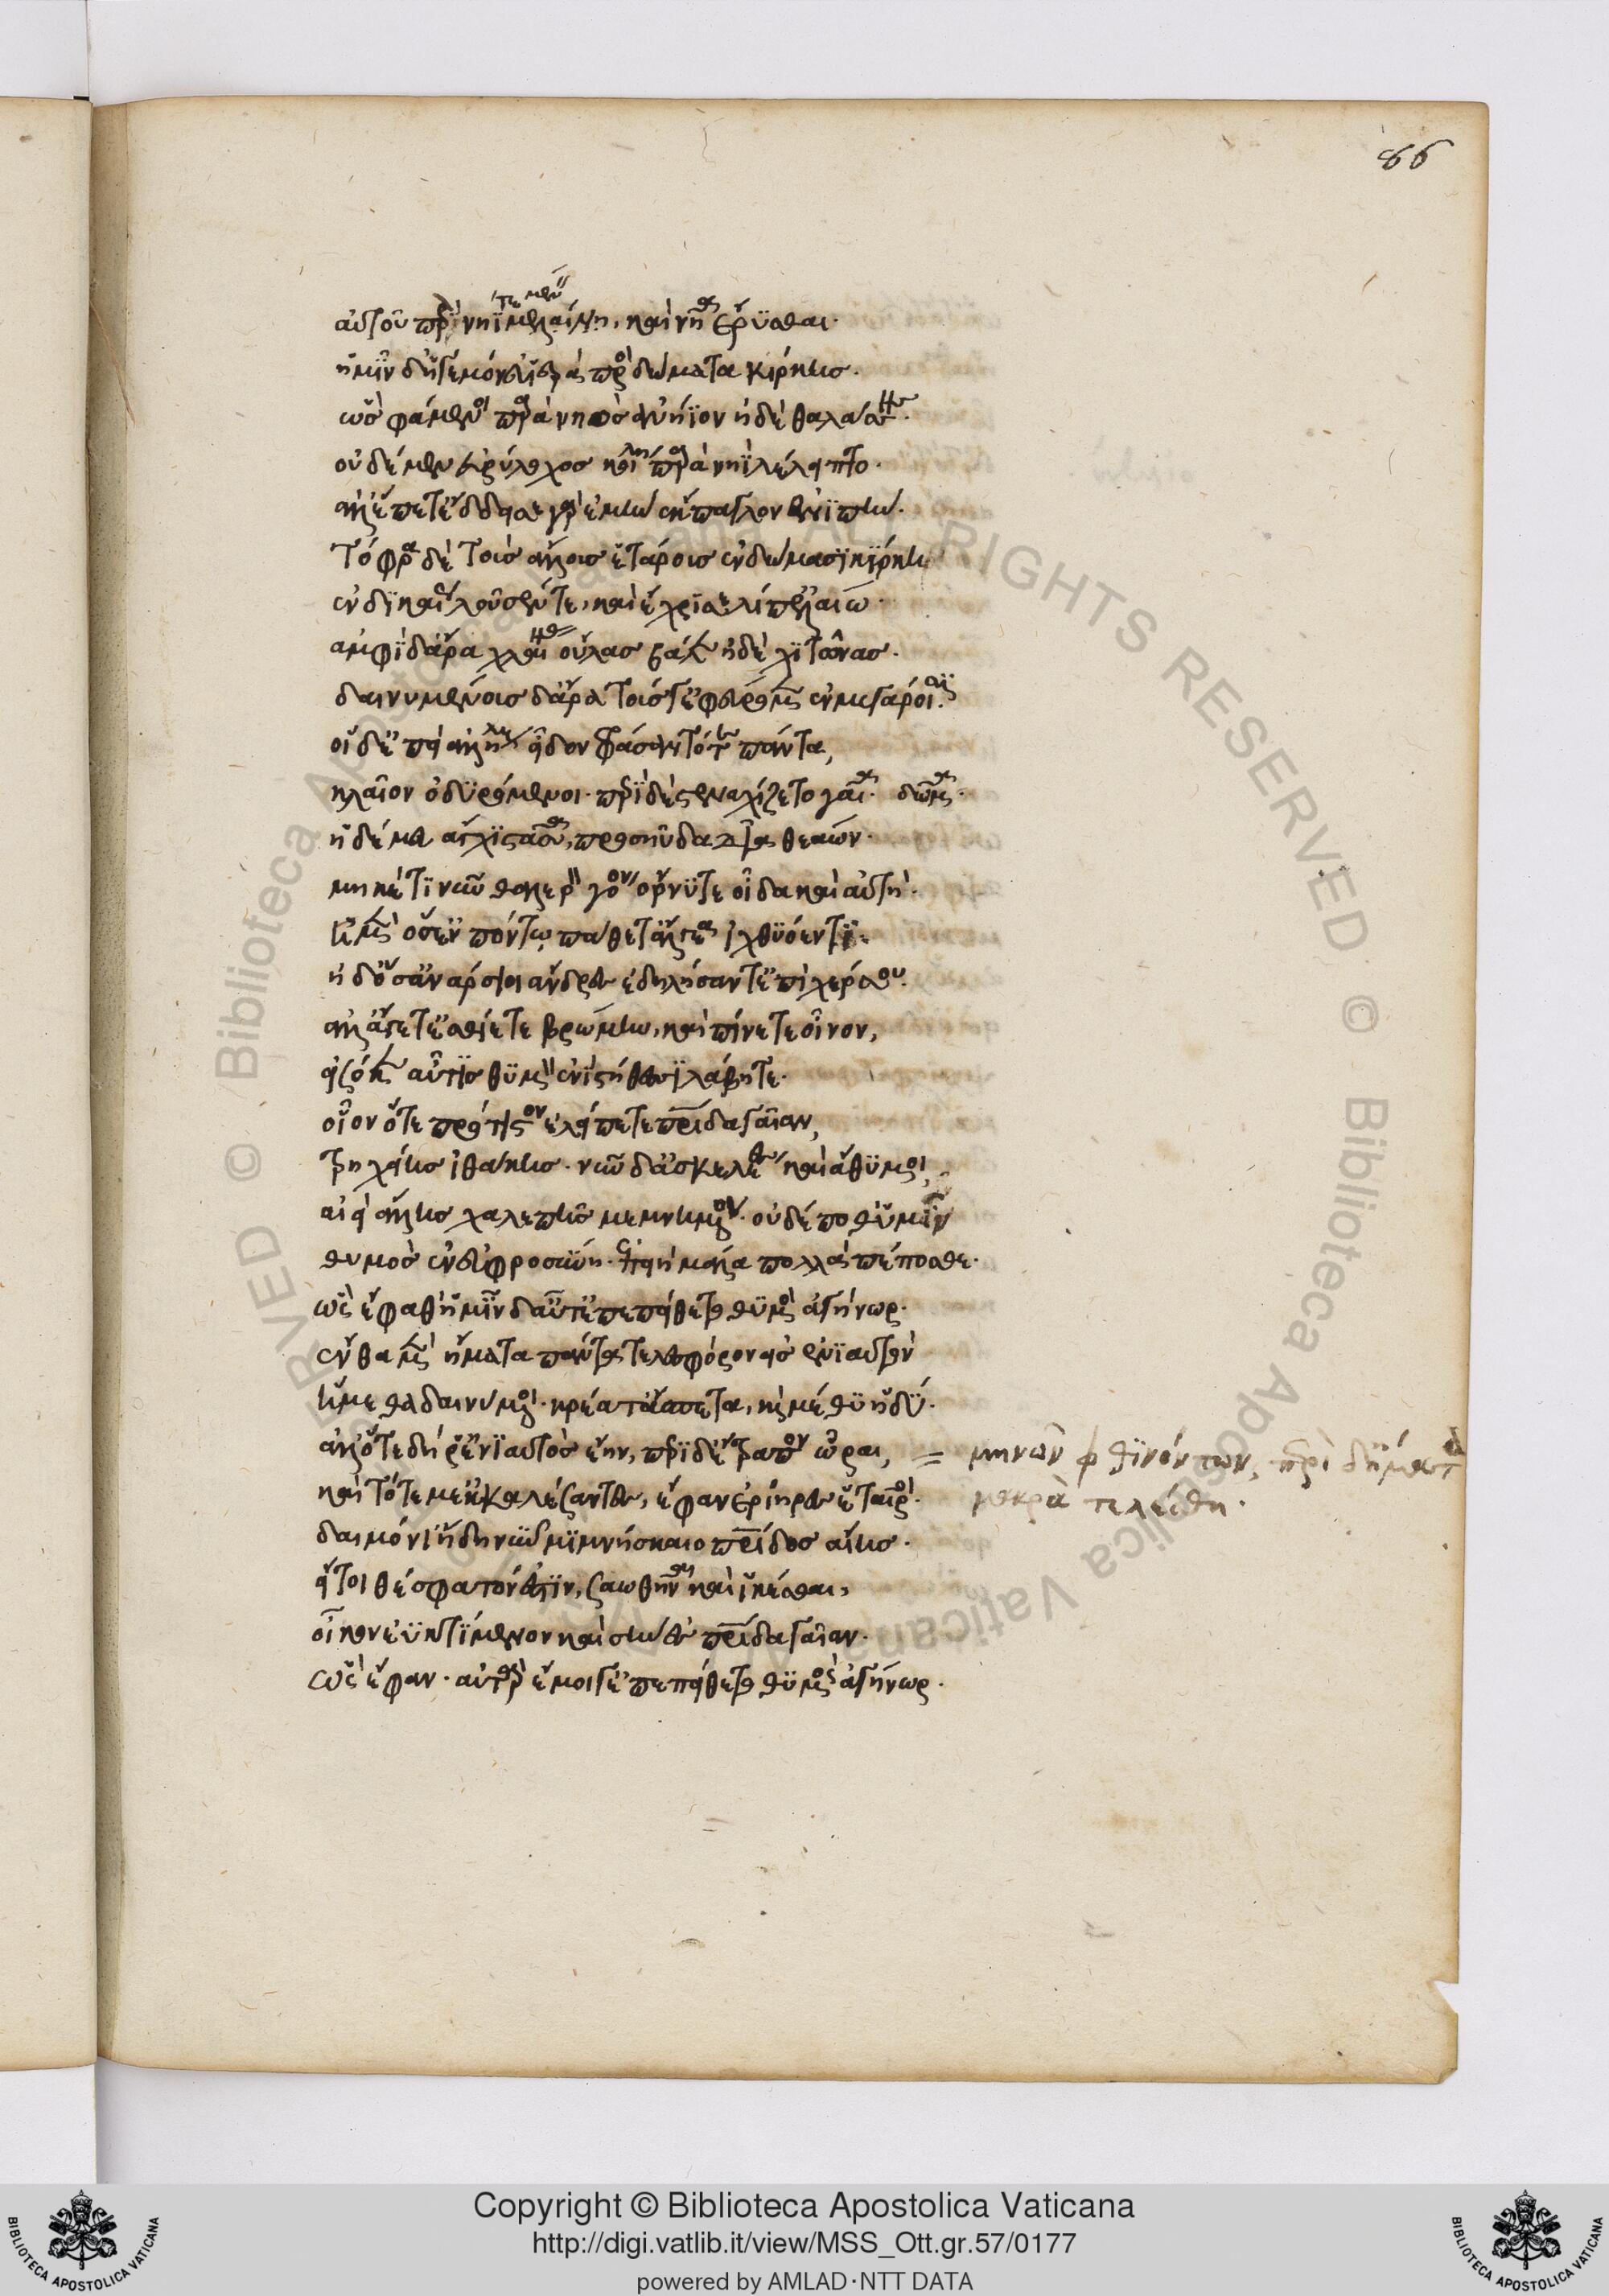 86
αὐτοῦ πὰρ νηΐ τε μένειν μελαίνῃ, καὶ νῆα ἔρυσθαι·
ἡμῖν δ' ἡγεμόνευ' ἱερὰ πρὸς δώματα κίρκης.
ὣς φάμενοι παρὰ νηὸς ἀνήϊον ἠδὲ θαλάσσης.
οὐδὲ μὲν εὐρύλοχος κοίλῃ παρὰ νηῒ λέλειπτο.
ἀλλ' ἕπετ' ἔδδεισε γὰρ ἐμὴν ἔκπαγλον ἐνιπήν.
τόφρα δὲ τοὺς ἄλλους ἑτάρους ἐν δώμασι κίρκη
ἐνδυκέως λοῦσέν τε, καὶ ἔχρισε λίπ' ἐλαίω.
ἀμφὶ δ' ἄρα χλαίνας οὔλας βάλεν ἠδὲ χιτῶνας.
δαινυμένους δ' ἄρα τούς γ' ἐφεύρομεν ἐν μεγάροισι.
οἱ δ' ἐπεὶ ἀλλήλους εἶδον φράσαντό τε πάντα,
κλαῖον ὀδυρόμενοι· περὶ δὲ στεναχίζετο γαῖα. δῶμα.
ἡ δέ μευ ἄγχι στᾶσα, προσηύδα δῖα θεάων.
μηκέτι νῦν θαλερὸν γόον ὄρνυτε οἶδα καὶ αὐτή.
ἠμὲν ὅσ' ἐν πόντω πάθετ' ἄλγεα ἰχθυόεντι.
ἠδ' ὅσ' ἀνάρσιοι ἄνδρες ἐδηλήσαντ' ἐπὶ χέρσου.
ἀλλ' ἄγετ' ἐσθίετε βρώμην, καὶ πίνετε οἶνον,
εἰσόκεν αὖτις θυμὸν ἐνὶ στήθεσι λάβητε.
οἷον ὅτε πρώτιστον ἐλείπετε πατρίδα γαῖαν,
τρηχείης ἰθάκης. νῦν δ' ἀσκελέες καὶ ἄθυμοι,
αἰεὶ ἄλης χαλεπῆς μεμνημένοι. οὐδέ ποθ' ὑμῖν
θυμὸς ἐν εὐφροσύνῃ. ἐπειὴ μάλα πολλὰ πέποσθε.
ὣς ἔφαθ' ἡμῖν δ' αὖτ' ἐπεπείθετο θυμὸς ἀγήνωρ.
ἔνθα μὲν ἤματα πάντα τελεσφόρον εἰς ἐνιαυτὸν
ἥμεθα δαινύμενοι. κρέα τ' ἄσπετα, καὶ μέθυ ἡδύ.
ἀλλ' ὅτε δή ῥ' ἐνιαυτὸς ἔην, περὶ δ' ἔτραπον ὧραι, = μηνῶν φθινόντων, περὶ δ' ἤματα
μακρὰ τελέσθη.
καὶ τότε μ' ἐκκαλέσαντες, ἔφαν ἐρίηρες ἑταῖροι.
δαιμόνι' ἤδη νῦν μιμνήσκεο πατρίδος αἴης.
εἴ τοι θέσφατόν ἐστιν, σαωθῆναι καὶ ἱκέσθαι,
οἶκον ἐϋκτίμενον καὶ σὴν ἐς πατρίδα γαῖαν.
ὣς ἔφαν. αὐτὰρ ἔμοιγ' ἐπεπείθετο θυμὸς ἀγήνωρ.
Copyright © Biblioteca Apostolica Vaticana
http://digi.vatlib.it/view/MSS_Ott.gr.57/0177
powered by AMLAD·NTT DATA